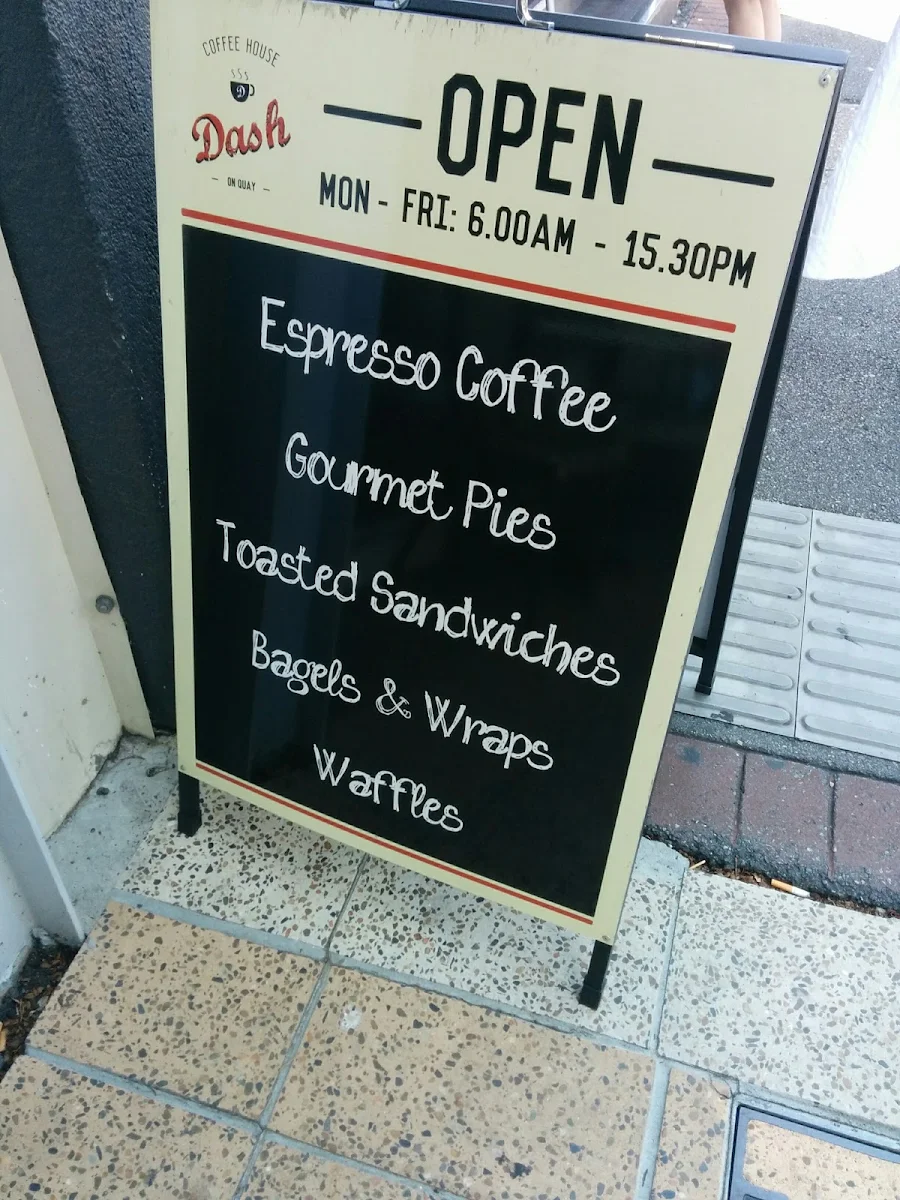 COFFEE HOUSE
D
Dash
— ON QUAY —
— OPEN —
MON - FRI: 6.00AM - 15.30PM
Espresso Coffee
Gourmet Pies
Toasted Sandwiches
Bagels & Wraps
Waffles